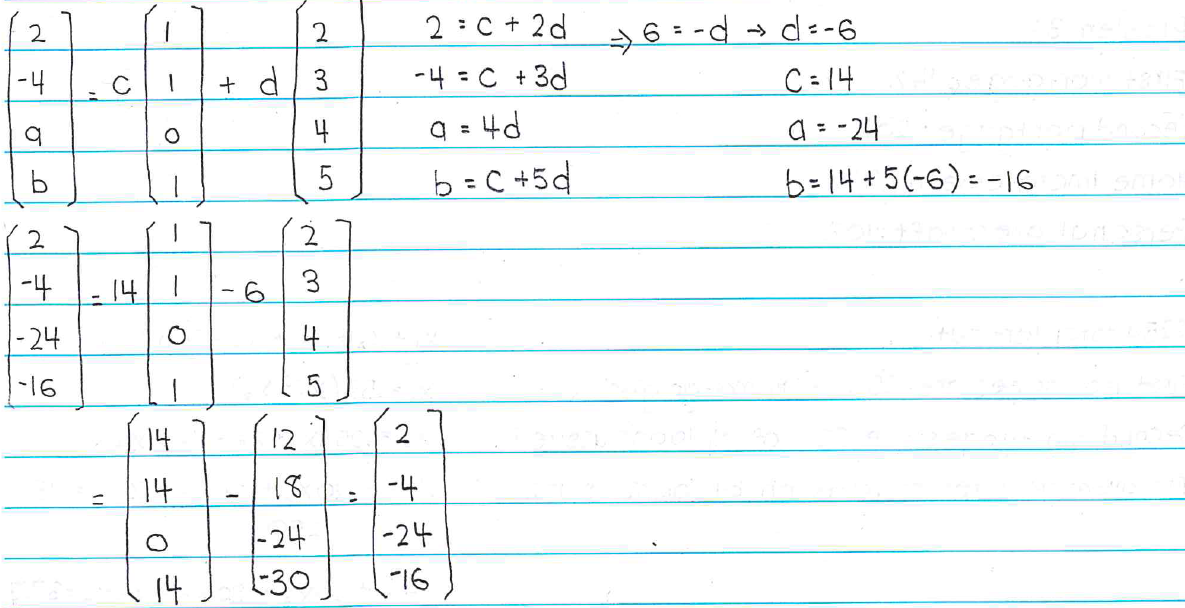 [2; -4; a; b] = c [1; 1; 0; 1] + d [2; 3; 4; 5]
2 = c + 2d ⇒ 6 = -d → d = -6
-4 = c + 3d c = 14
a = 4d a = -24
b = c + 5d b = 14 + 5(-6) = -16
[2; -4; -24; -16] = 14 [1; 1; 0; 1] - 6 [2; 3; 4; 5]
= [14; 14; 0; 14] - [12; 18; -24; -30] = [2; -4; -24; -16]